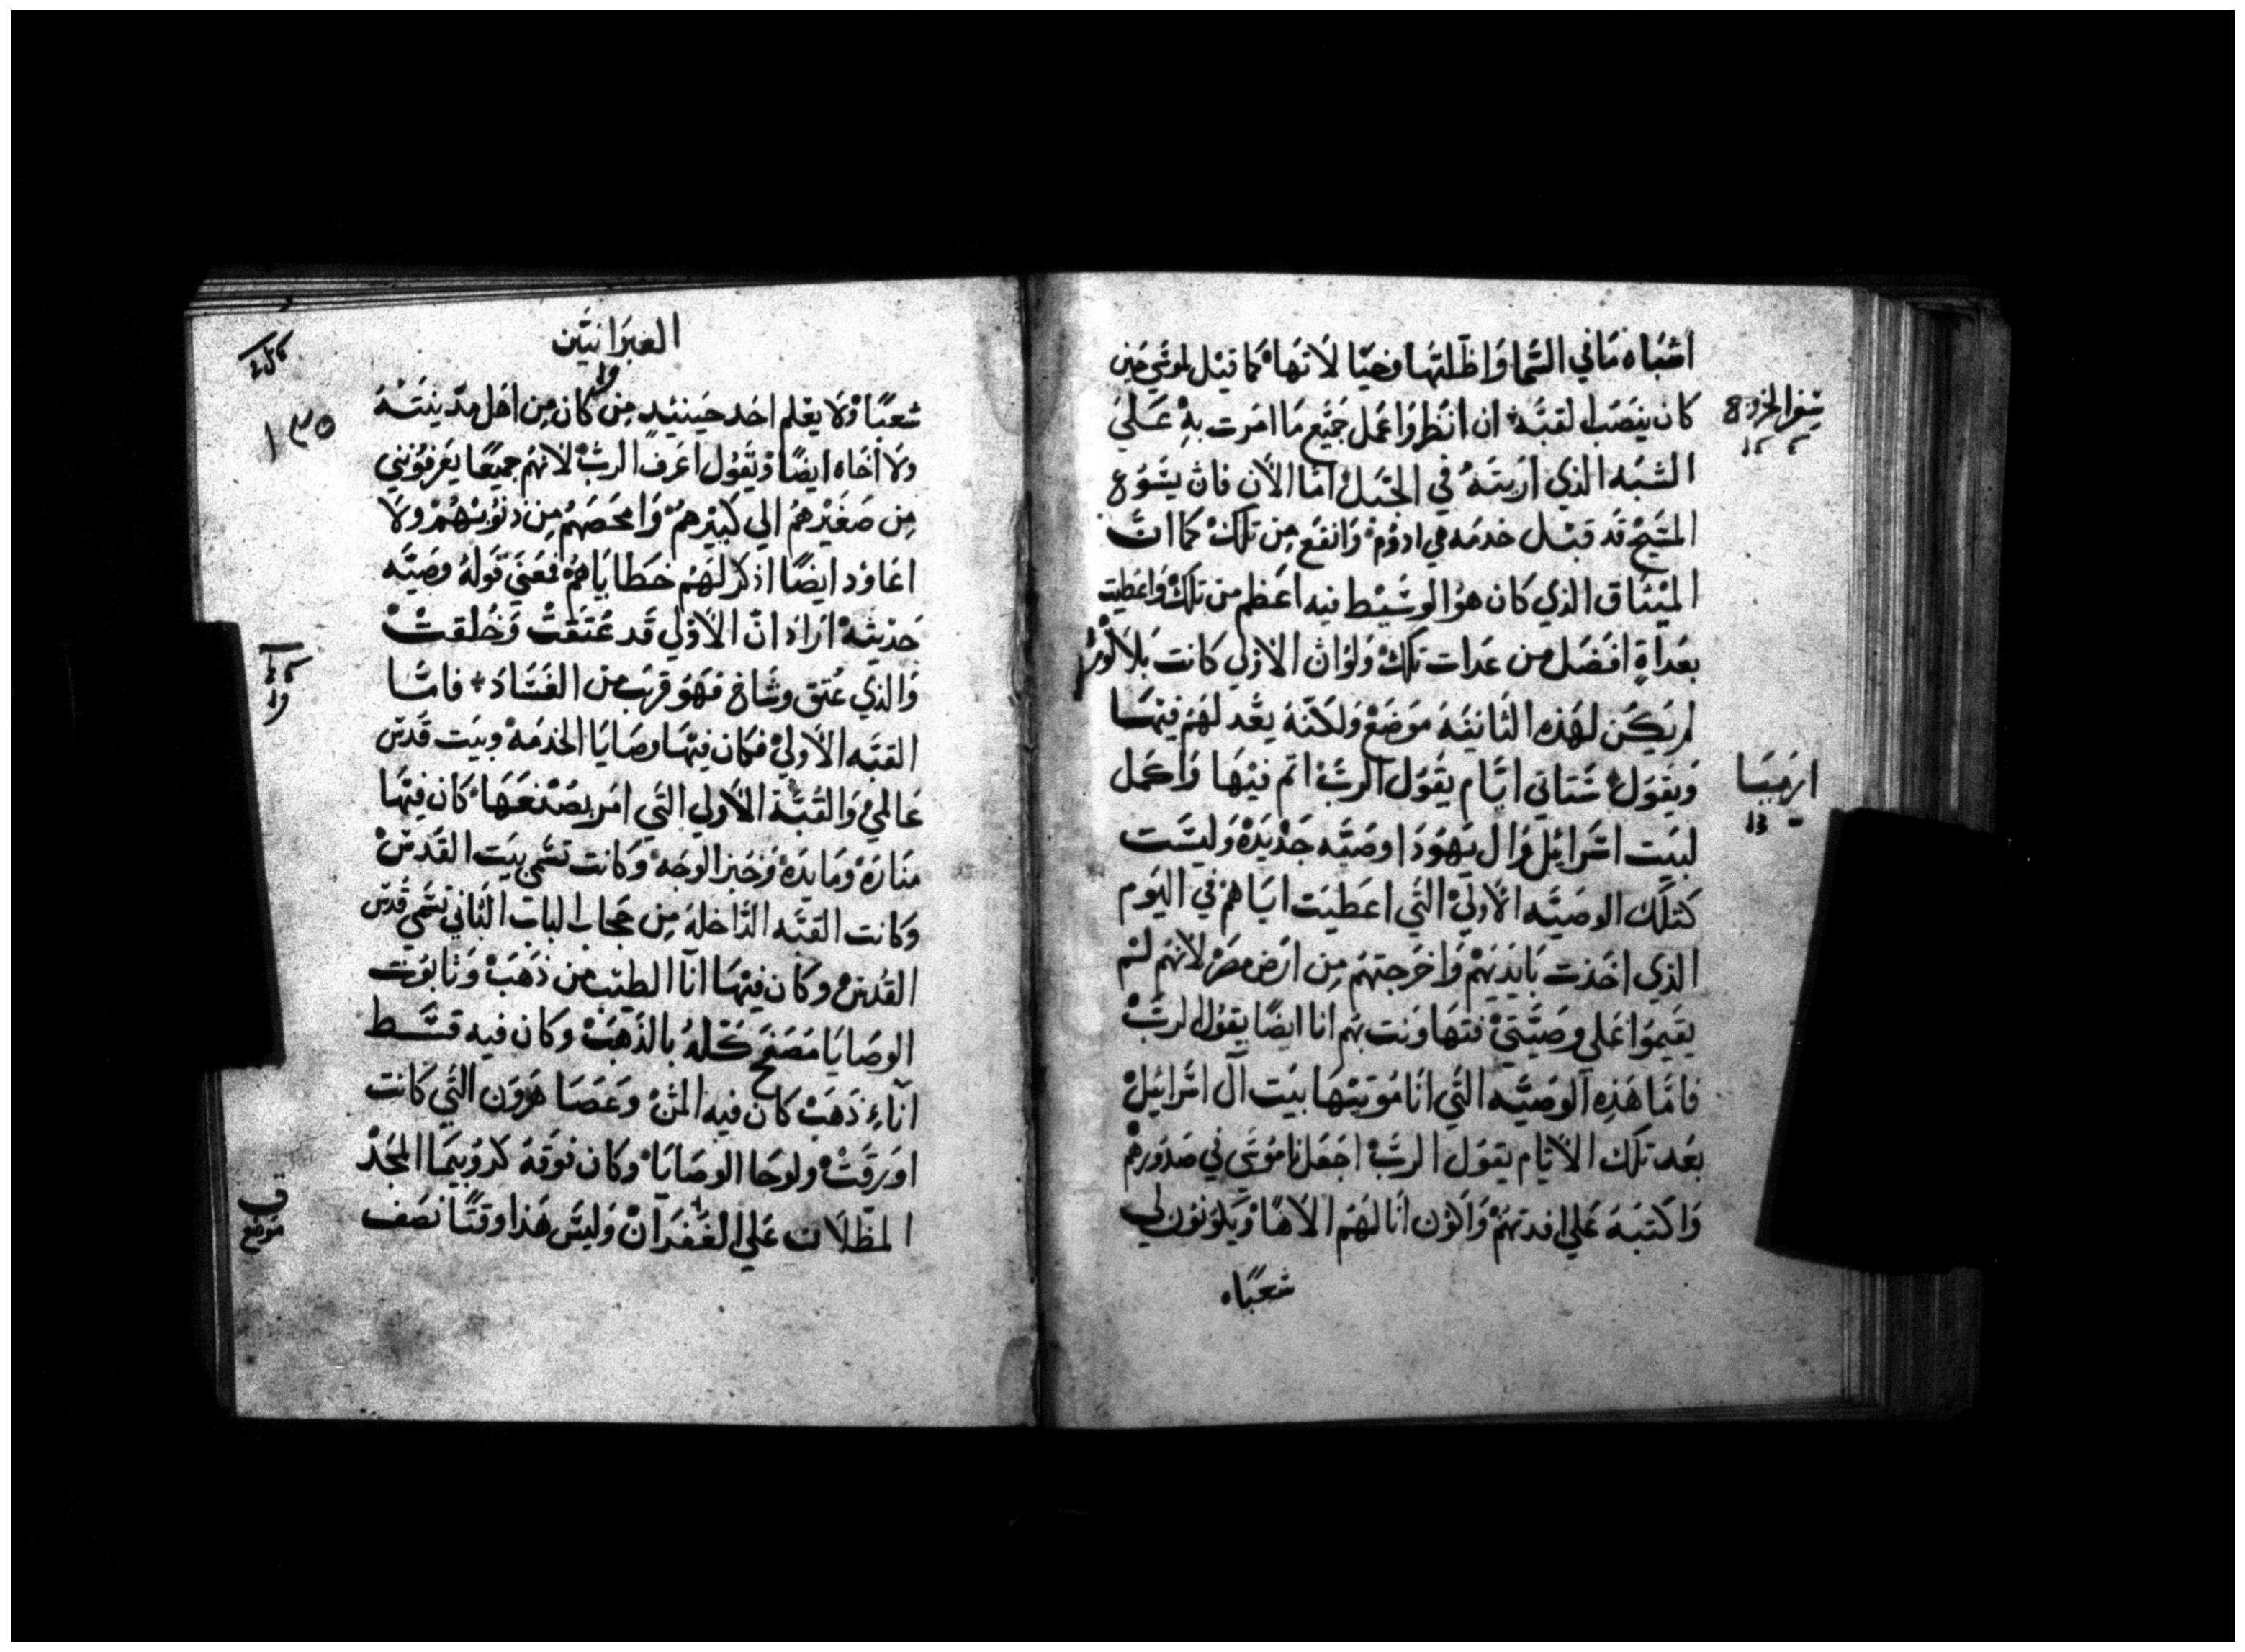 اشباه ما في السما واظلتها وخيالاتها كما قيل لموسي حين
كان ينصب القبه ان انظر واعمل جميع ما امرت به علي
الشبه الذي اريته في الجبل اما الان فان يشوع
المسيح قد قبل خدمه هي ادوم وانفع من تلك كما ان
الميثاق الذي كان هو الوسيط فيه اعظم من تلك واعطيت
بعداة افضل من عدات تلك ولو ان الاولي كانت بلا لوم
لم يكن لهذه الثانيه موضع ولكنه يعد لهم فيها
ويقول ستاتي ايام يقول الرب اتم فيها واكمل
لبيت اسرائيل وال يهودا وصيه جديدة وليست
كتلك الوصيه الاولي التي اعطيت اياهم في اليوم
الذي اخذت بايديهم واخرجتهم من ارض مصر لانهم لم
يقيموا علي وصيتي فتهاونت بهم انا ايضا يقول الرب
فاما هذه الوصيه التي انا موتيها بيت آل اسرائيل
بعد تلك الايام يقول الرب اجعل ناموسي في صدورهم
واكتبه علي افدتهم واكون انا لهم الاها ويكونون لي
شعبا
سفر الخروج
ارميا
العبرانيين
شعبا ولا يعلم احد حينيد من كان من اهل مدينته
ولا اخاه ايضا ويقول اعرف الرب لانهم جميعا يعرفونني
من صغيرهم الي كبيرهم وامحصهم من دنوبهم ولا
اعاود ايضا اذكر لهم خطاياهم فمعني قوله وصيه
حديثه اراد ان الاولي قد عتقت وخلقت
والذي عتق وشاخ فهو قرب من الفساد فاما
القبه الاولي فكان فيها وصايا الخدمه وبيت قدس
عالمي والقبة الاولي التي امر بصنعها كان فيها
منارة ومايدة وخبز الوجه وكانت تسمي بيت القدس
وكانت القبه الداخله من حجاب الباب الثاني تسمي قدس
القدس وكان فيها انآ الطيب من ذهب وتابوت
الوصايا مصفح كله بالذهب وكان فيه قسط
آناء ذهب كان فيه المن وعصا هرون التي كانت
اورقت ولوحا الوصايا وكان فوقه كروبيما المجد
المظلان علي الغفران وليس هذا وقتا نصف
١٣٥
موضع